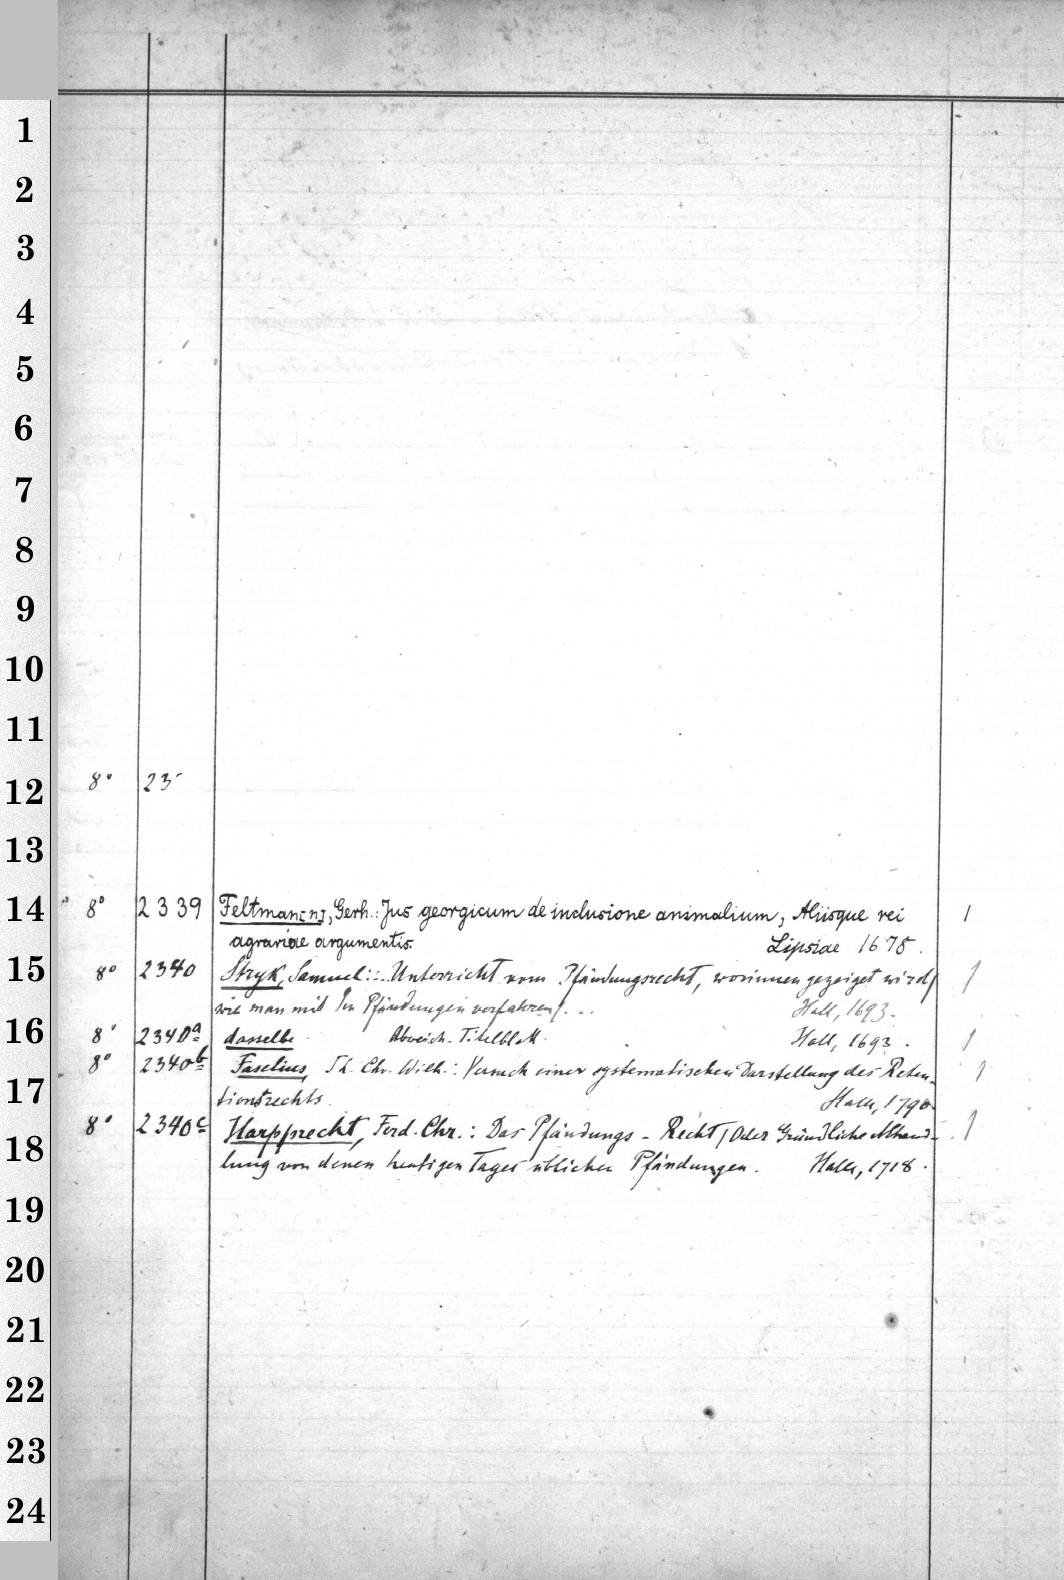 1
2
3
4
5
6
7
8
9
10
11
12
8° 23
13
14
8° 2339 Feltman[n], Gerh.: Jus georgicum de inclusione animalium, Aliisque rei 1
agrariae argumentis. Lipsiae 1678.
15
8° 2340 Stryk, Samuel: Unterricht vom Pfändungsrecht, worinnen gezeiget wird/ 1
wie man mit den Pfändungen verfahren/... Hall, 1693.
16
8° 2340a dasselbe Abweich. Titelblatt. Hall, 1693. 1
8° 2340b Faselius, Th. Chr. Wilh.: Versuch einer systematischen Darstellung des Reten- 1
17
tionsrechts. Halle, 1790.
8° 2340c Harpprecht, Ferd. Chr.: Das Pfändungs-Recht/ Oder Gründliche Abhand- 1
18
lung von denen heutigen Tages üblichen Pfändungen. Halle, 1718.
19
20
21
22
23
24